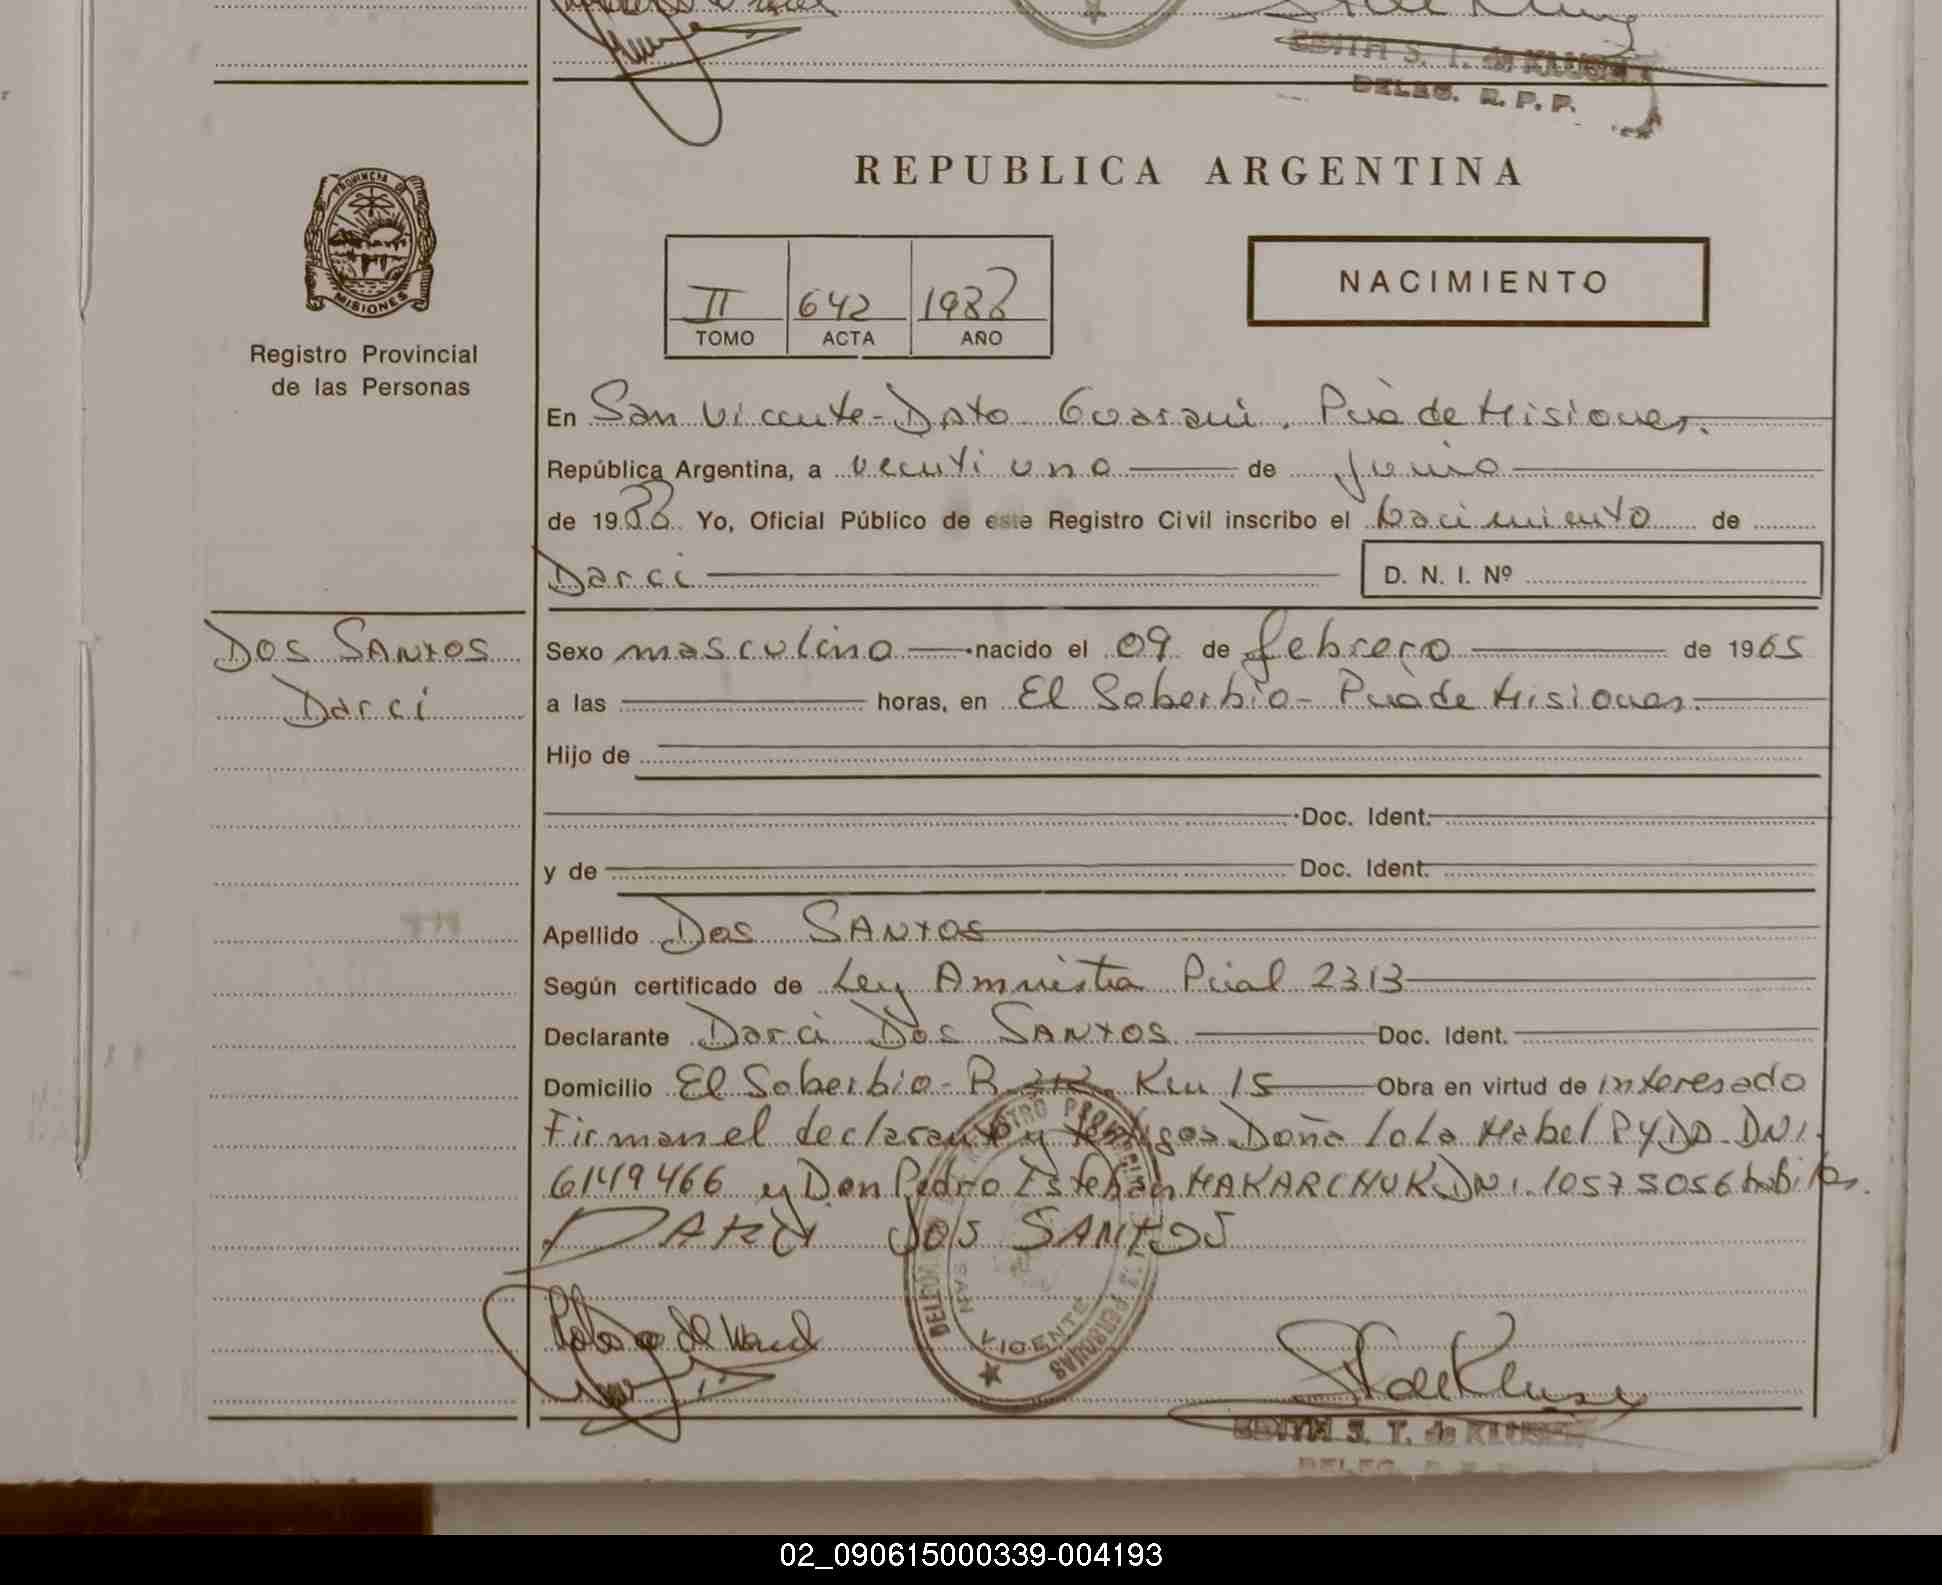 EDITH S. T. de KLUSE
DELEG. R. P. P.
PROVINCIA DE
MISIONES
Registro Provincial
de las Personas
REPUBLICA ARGENTINA
II 642 1988
TOMO ACTA AÑO
NACIMIENTO
En San Vicente-Dpto Guarani. Pcia de Misiones.
República Argentina, a veintiuno de junio
de 1988 Yo, Oficial Público de este Registro Civil inscribo el nacimiento de
Darci D. N. I. Nº
Dos SANTOS
Darci
Sexo masculino nacido el 09 de febrero de 1965
a las horas, en El Soberbio - Pcia de Misiones.
Hijo de
Doc. Ident.
y de Doc. Ident.
Apellido Dos SANTOS
Según certificado de Ley Amnistia Pcial 2313
Declarante Darci Dos SANTOS Doc. Ident.
Domicilio El Soberbio - R. 212 Km 15 Obra en virtud de interesado
Firman el declarante y testigos Doña Lola Mabel PYDD. DNI.
6149466 y Don Pedro Esteban MAKARCHUK DNI. 10575056 habiles.
DARCi DOS SANTOS
SAN VICENTE
EDITH S. T. de KLUSE
DELEG. R. P. P.
02_090615000339-004193